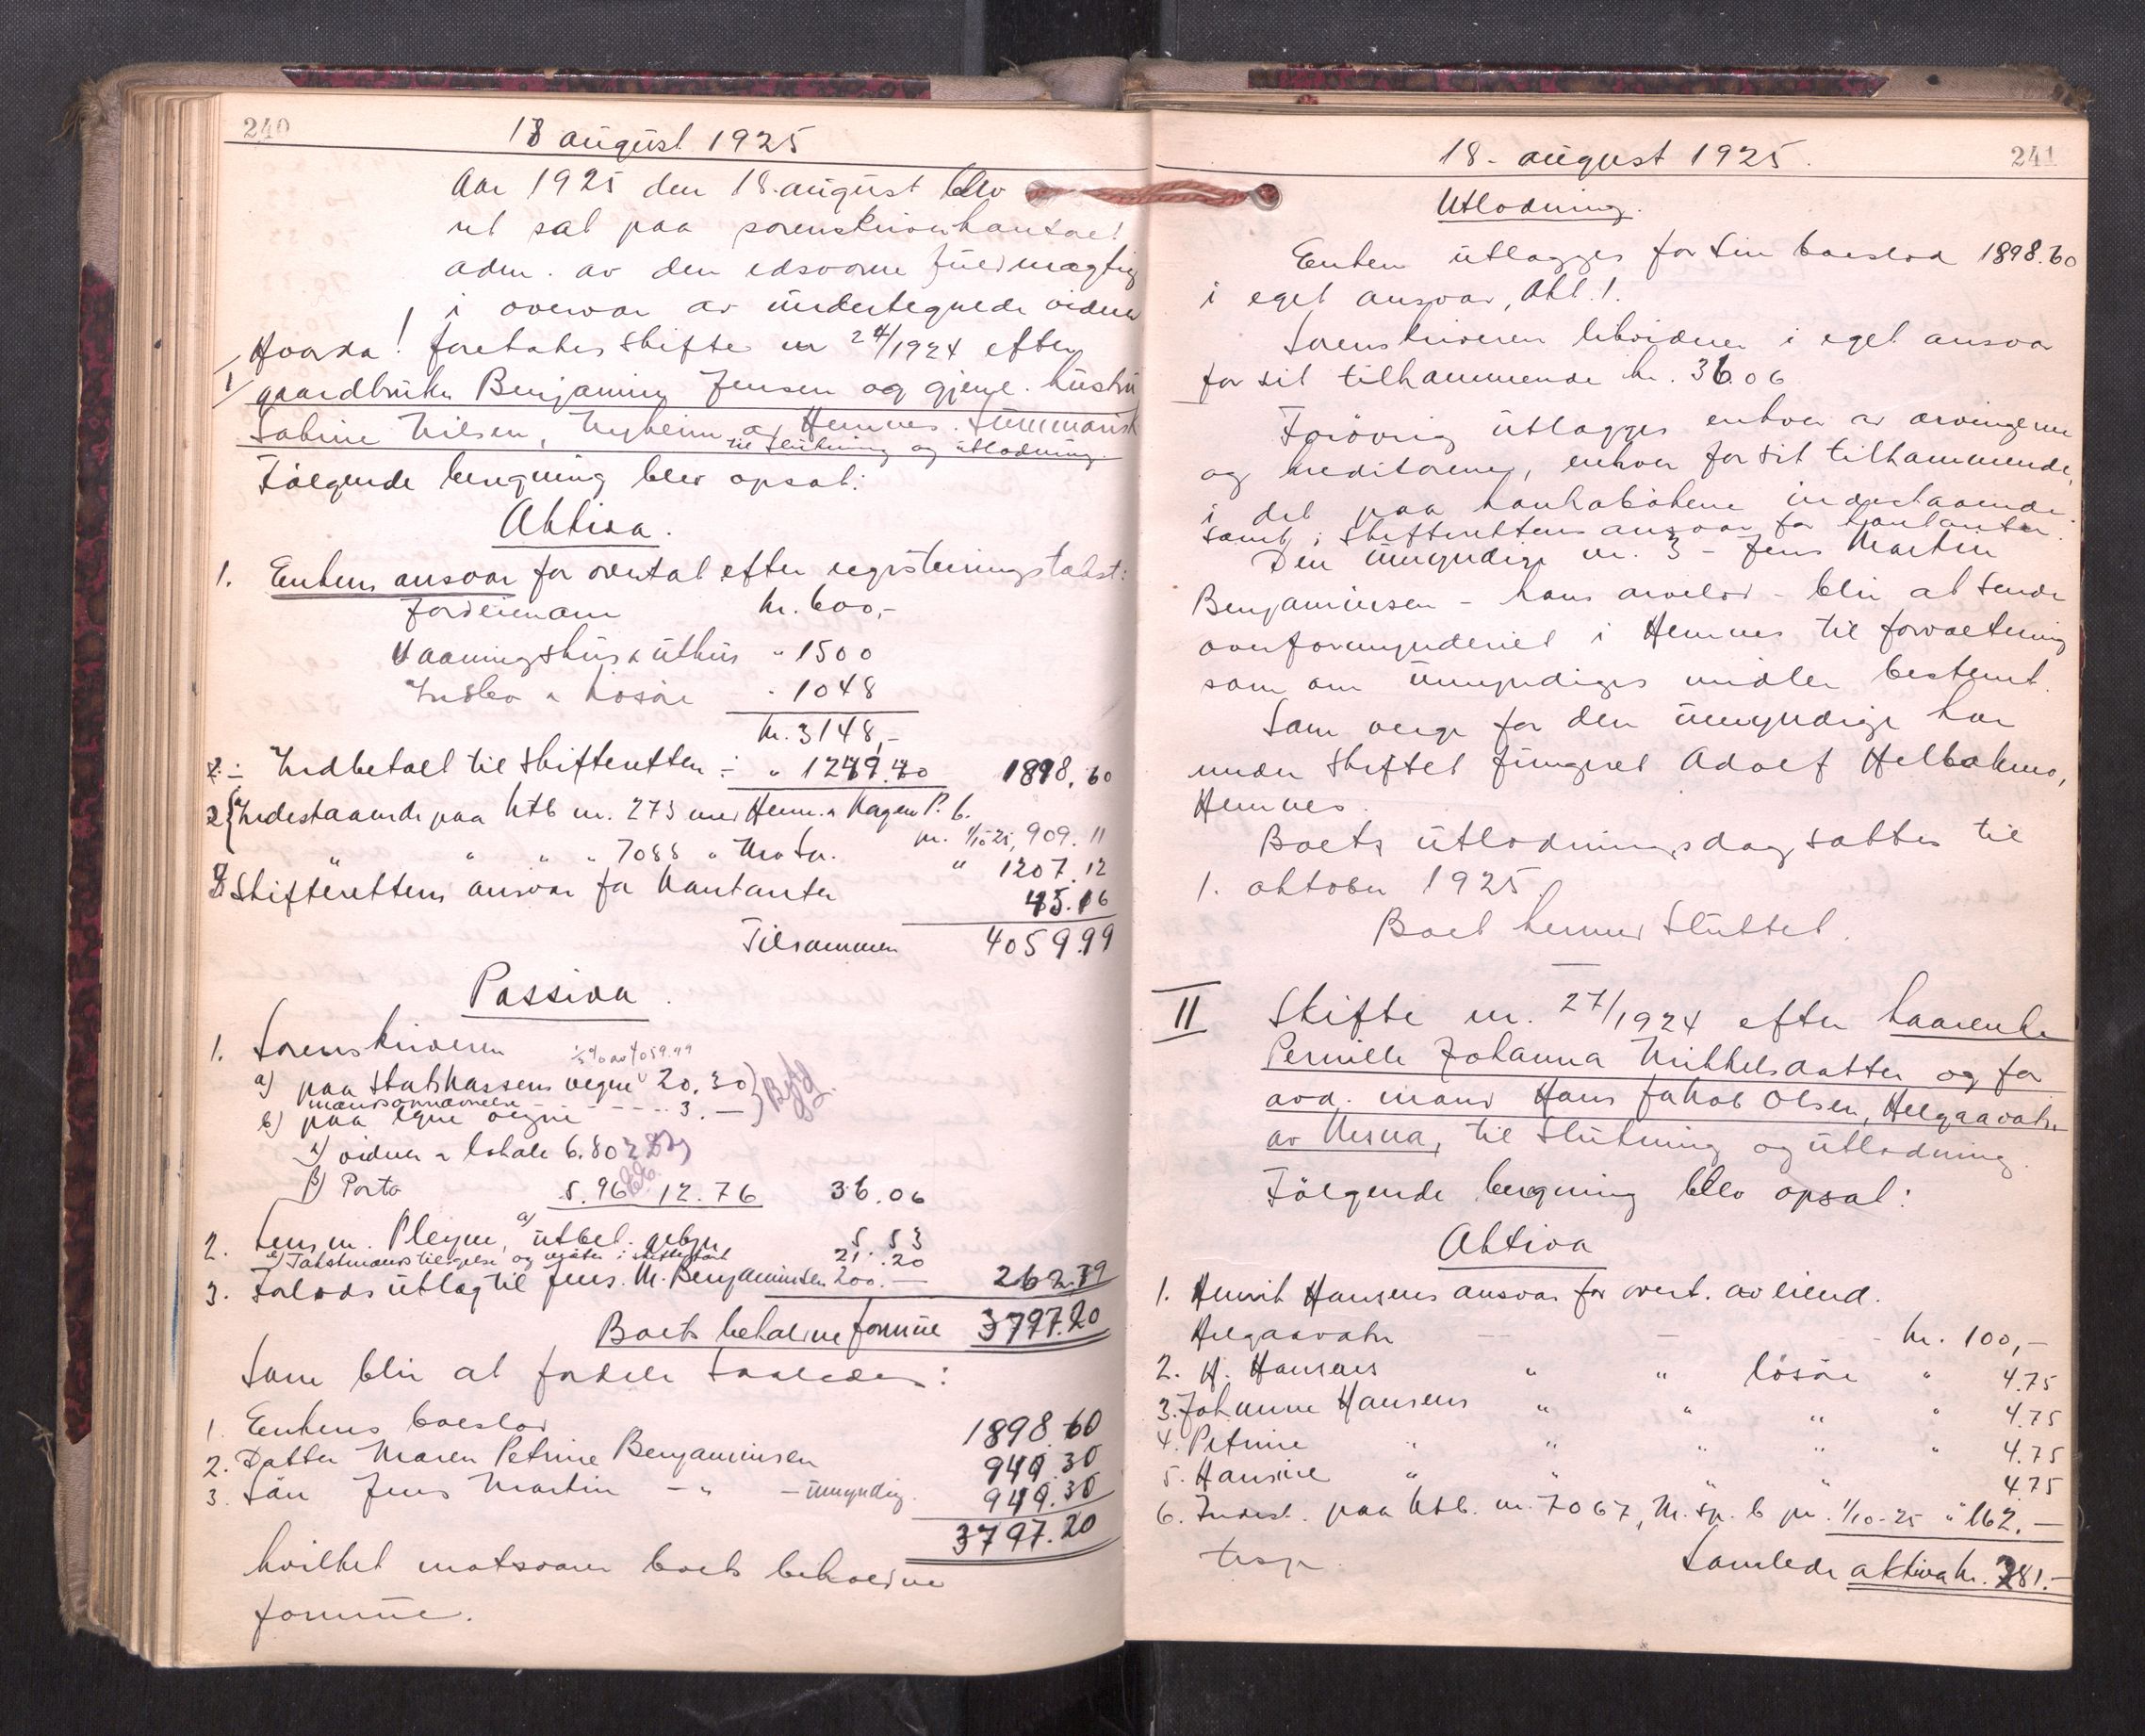 240
18 august 1925
Aar 1925 den 18. august blev
ret sat paa sorenskriverkontoret
adm. av den edsvorne fuldmægtig
i overvær av undertegnede vidner
Hvorda! foretokes skifte nr 24/1924 efter
I gaardbruker Benjamin Jensen og gjenl. hustru
Sabine Nilsen, Nyheim av Hemnes. Summarisk
til slutning og utlodning.
Følgende beregning blev opsat:
Aktiva.
1. Enkens ansvar for overtat efter registreringstakst:
Jordeiendom kr. 600,-
Vaaningshus & uthus " 1500
Indbo & løsøre " 1048
kr. 3148,-
÷ Indbetalt til skifteretten ÷ " 1249.40 1898.60
2 Indestaaende paa ktb nr. 273 med Hemn. & Korgen P. b.
pr. 1/10 25, 909.11
" " " " 7088 " Mo Sp. " 1207.12
3 Skifterettens ansvar for kontanter 45.16
Tilsammen 4059.99
Passiva.
1. Sorenskriveren ½% av 4059.99
a) paa Statskassens vegne 20.30
mandsopnævnelse - - - - 3.—
b) paa egne vegne
α) vidner & lokale 6.80
β) Porto 5.96 12.76 36.06
2. Lensm. Pleym, a) utbet. gebyr 5.53
b) Takstmænds tilsigelse og møter i skifteret 21.20
3. Forlods utlæg til Jens M. Benjaminsen 200.— 262.79
Boets beholdne formue 3797.20
Som blir at fordele saaledes:
1. Enkens boeslod 1898.60
2. Datter Maren Petrine Benjaminsen 949.30
3. Søn Jens Martin — " — umyndig. 949.30
3797.20
hvilket motsvarer boets beholdne
formue.
241
18. august 1925.
Utlodning.
Enken utlægges for sin boeslod 1898.60
i eget ansvar, Akt. 1.
Sorenskriveren likviderer i eget ansvar
for sit tilkommende kr. 36.06
Forøvrig utlægges enhver av arvingerne
og kreditorene, enhver for sit tilkommende,
i det paa bankbøkene indestaaende
samt i skifterettens ansvar for kontanter.
Den umyndige nr. 3 - Jens Martin
Benjaminsen - hans arvelod - blir at sende
overformynderiet i Hemnes til forvaltning
som om umyndiges midler bestemt.
Som verge for den umyndige har
under skiftet fungeret Adolf Helbekmo,
Hemnes.
Boets utlodningsdag sættes til
1. oktober 1925.
Boet hermed sluttet.
II Skifte nr. 27/1924 efter kaarenke
Pernille Johanna Mikkelsdatter og før
avd. mand Hans Jakob Olsen, Helgaavatn
av Nesna, til slutning og utlodning.
Følgende beregning blev opsat:
Aktiva
1. Henrik Hansens ansvar for overt. av eiend.
Helgaavatn — — - kr. 100,-
2. H. Hansens " " løsøre " 4.75
3. Johanne Hansens " " " " 4.75
4. Petrine " " " " " 4.75
5. Hansine " " " " 4.75
6. Indest. paa ktb. nr. 7067, M. sp. b pr. 1/10-25 " 162.—
Samlede aktiva kr. 281.—